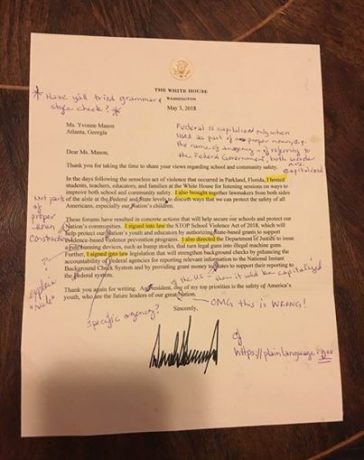 THE WHITE HOUSE
WASHINGTON
* Have y'all tried grammar &
style check? *
May 3, 2018
Ms. Yvonne Mason
Atlanta, Georgia
Federal is capitalized only when
used as part of a proper noun, e.g.
the name of agency or referring to
the Federal Government, both words are capitalized
Dear Ms. Mason,
Thank you for taking the time to share your views regarding school and community safety.
In the days following the senseless act of violence that occurred in Parkland, Florida, I hosted
students, teachers, educators, and families at the White House for listening sessions on ways to
improve both school and community safety. I also brought together lawmakers from both sides
of the aisle at the Federal and State levels to discuss ways that we can protect the safety of all
Americans, especially our Nation's children.
Not part
of
proper
noun
construction
These forums have resulted in concrete actions that will help secure our schools and protect our
Nation's communities. I signed into law the STOP School Violence Act of 2018, which will
help protect our Nation's youth and educators by authorizing State-based grants to support
evidence-based violence prevention programs. I also directed the Department of Justice to issue
a rule banning devices, such as bump stocks, that turn legal guns into illegal machine guns.
Further, I signed into law legislation that will strengthen background checks by enhancing the
accountability of Federal agencies for reporting relevant information to the National Instant
Background Check System and by providing grant money to States to support their reporting to
the Federal system.
explain
"rule"
of the US - then it would be capitalized
Thank you again for writing. As President, one of my top priorities is the safety of America's
youth, who are the future leaders of our great Nation.
OMG this is WRONG!
specific agency?
Sincerely,
cf
https://plainlanguage.gov